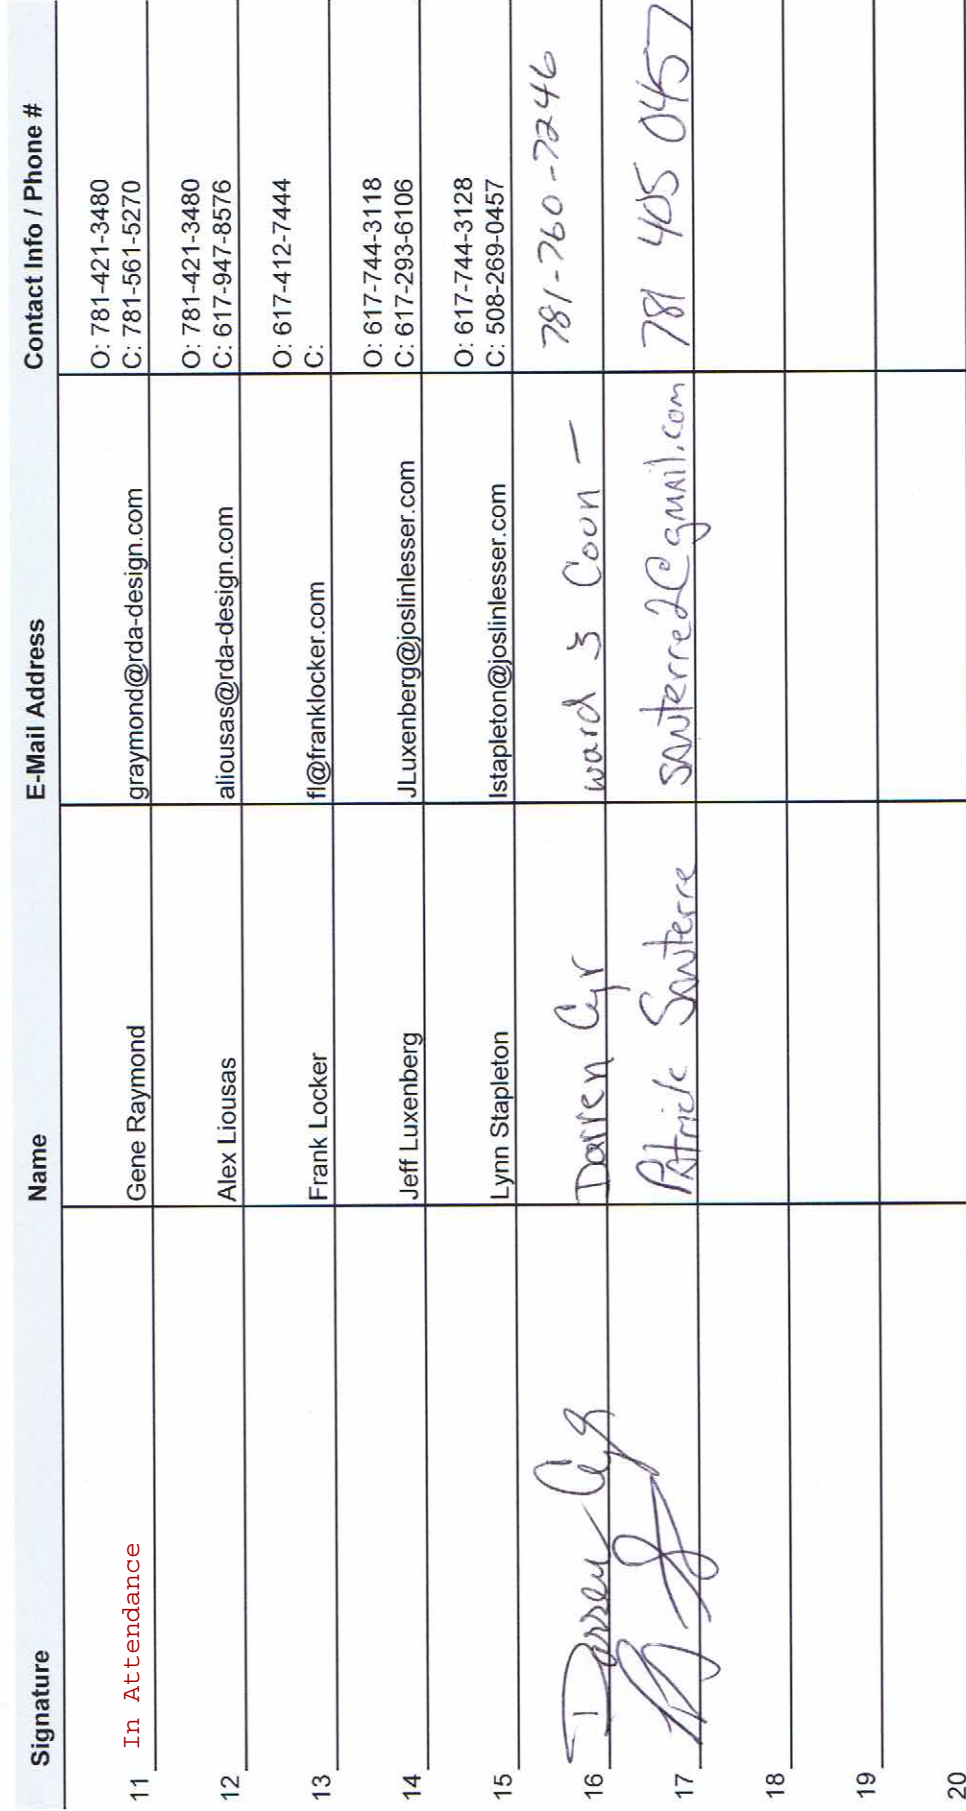 Signature Name E-Mail Address Contact Info / Phone #
O: 781-421-3480
11 In Attendance Gene Raymond graymond@rda-design.com C: 781-561-5270
O: 781-421-3480
12 Alex Liousas aliousas@rda-design.com C: 617-947-8576
O: 617-412-7444
13 Frank Locker fl@franklocker.com C:
O: 617-744-3118
14 Jeff Luxenberg JLuxenberg@joslinlesser.com C: 617-293-6106
O: 617-744-3128
15 Lynn Stapleton lstapleton@joslinlesser.com C: 508-269-0457
16 Darren Cyr Darren Cyr ward 3 Coun - 781-760-7246
17 Patrick Santerre santerre2@gmail.com 781 405 0457
18
19
20